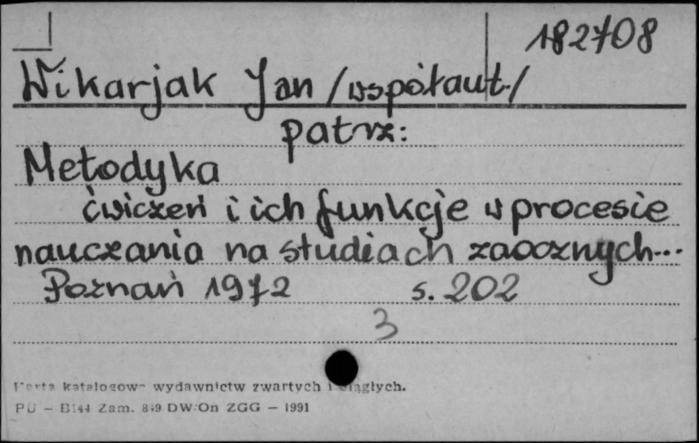 182708
Wikarjak Jan /współaut./
patrz:
Metodyka
ćwiczeń i ich funkcje w procesie
nauczania na studiach zaocznych...
Poznań 1972 s. 202
3
Karta katalogowa wydawnictw zwartych i ciągłych.
PU – B144 Zam. 849 DW/On ZGG – 1991